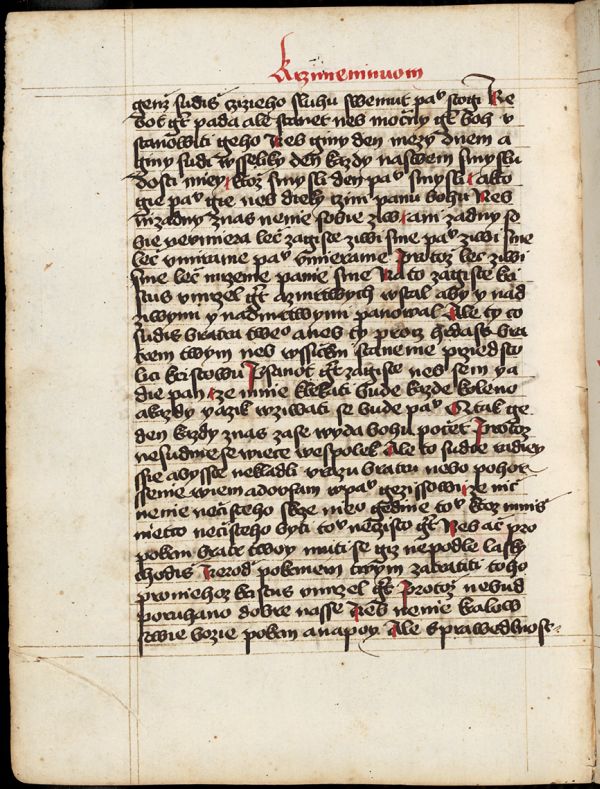 K rzimeninuom
genz sudis czizieho sluhu swemut pa͛ stogi Ne
bot gt͛ pada ale stanet nes mocny gt͛ boh v
stanowiti geho Nes giny den mezy dnem a
giny sudi wsseliky den kazdy naswem smyslu
dosti miey ktoz smysli den pa͛ smysli a kto
gie pa͛ gie nes dieky czini panu bohu Nes
nizadny znas nenie sobie ziw ani zadny so
bie nevmiera lec zagiste ziwi sme pa͛ ziwi sme
lec vmirame pa͛ vmierame Protoz lec ziwi
sme lec mrzeme panie sme Na to zagiste kri
stus vmrzel gt͛ a zmrtwych wstal aby y nad
ziwymi y nad mrtwymi panowal Ale ty co
sudis bratra tweo a nes ty procz hrdass bra
trem twym nes wssickni staneme przed sto
lici kristowu Psanot gt͛ zagiste nes sem ya
die pan ze mnie klekati bude kazde koleno
a kazdy yazik wziwati se bude pa͛ A tak ge
den kazdy znas zase wyda bohu pocet Protoz
nesudme se wiece wespolek Ale to sudte radiey
ssie abysste nekladli vrazu bratru nebo pohor
ssenie wiem a dovfam w pa͛ gezissowi ze nic
nenie necisteho skze nieo gedine to͛ ktoz mnis
nietco necisteho byti to͛ necisto gt͛ Nes ac pro
pokrm bratr twoy muti se giz nepodle lasky
chodis Nerod pokrmem twym zatratiti toho
pro niehoz kristus vmrzel gt͛ Protoz nebud
poruhano dobre nasse Nes nenie kralow
stwie bozie pokrm a napoy Ale sprawedlnost